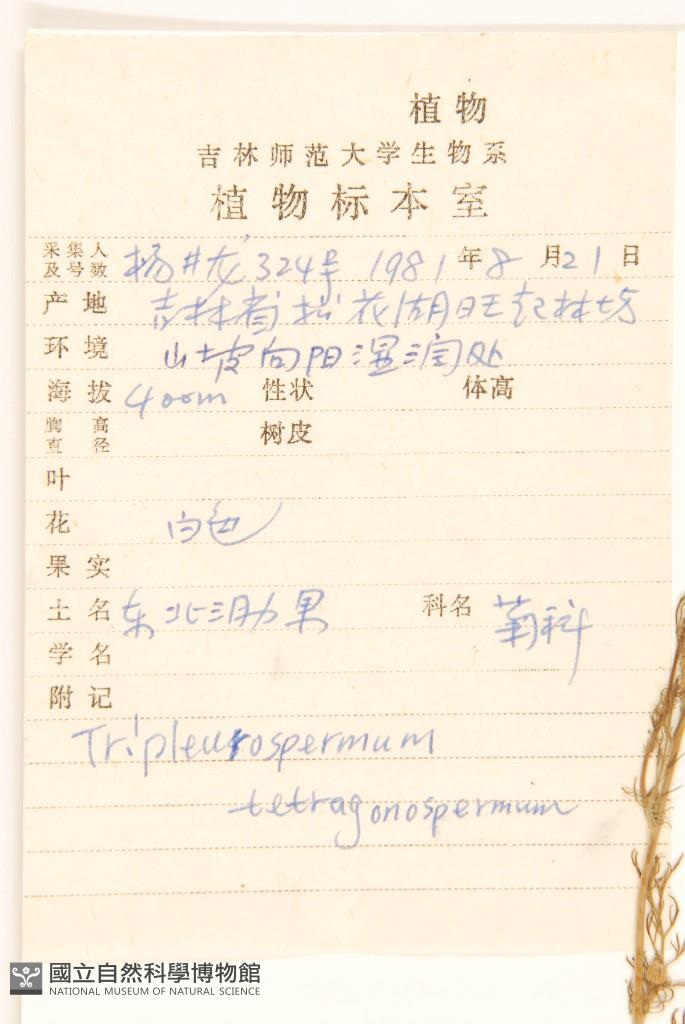 植物
吉林师范大学生物系
植物标本室
采集人及号数 杨井龙 324号 1981年8月21日
产地 吉林省松花湖旺起林场
环境 山坡向阳湿润处
海拔 400m 性状 体高
胸高直径 树皮
叶
花 白色
果实
土名 东北三肋果 科名 菊科
学名
附记
Tripleurospermum
tetragonospermum
國立自然科學博物館
NATIONAL MUSEUM OF NATURAL SCIENCE